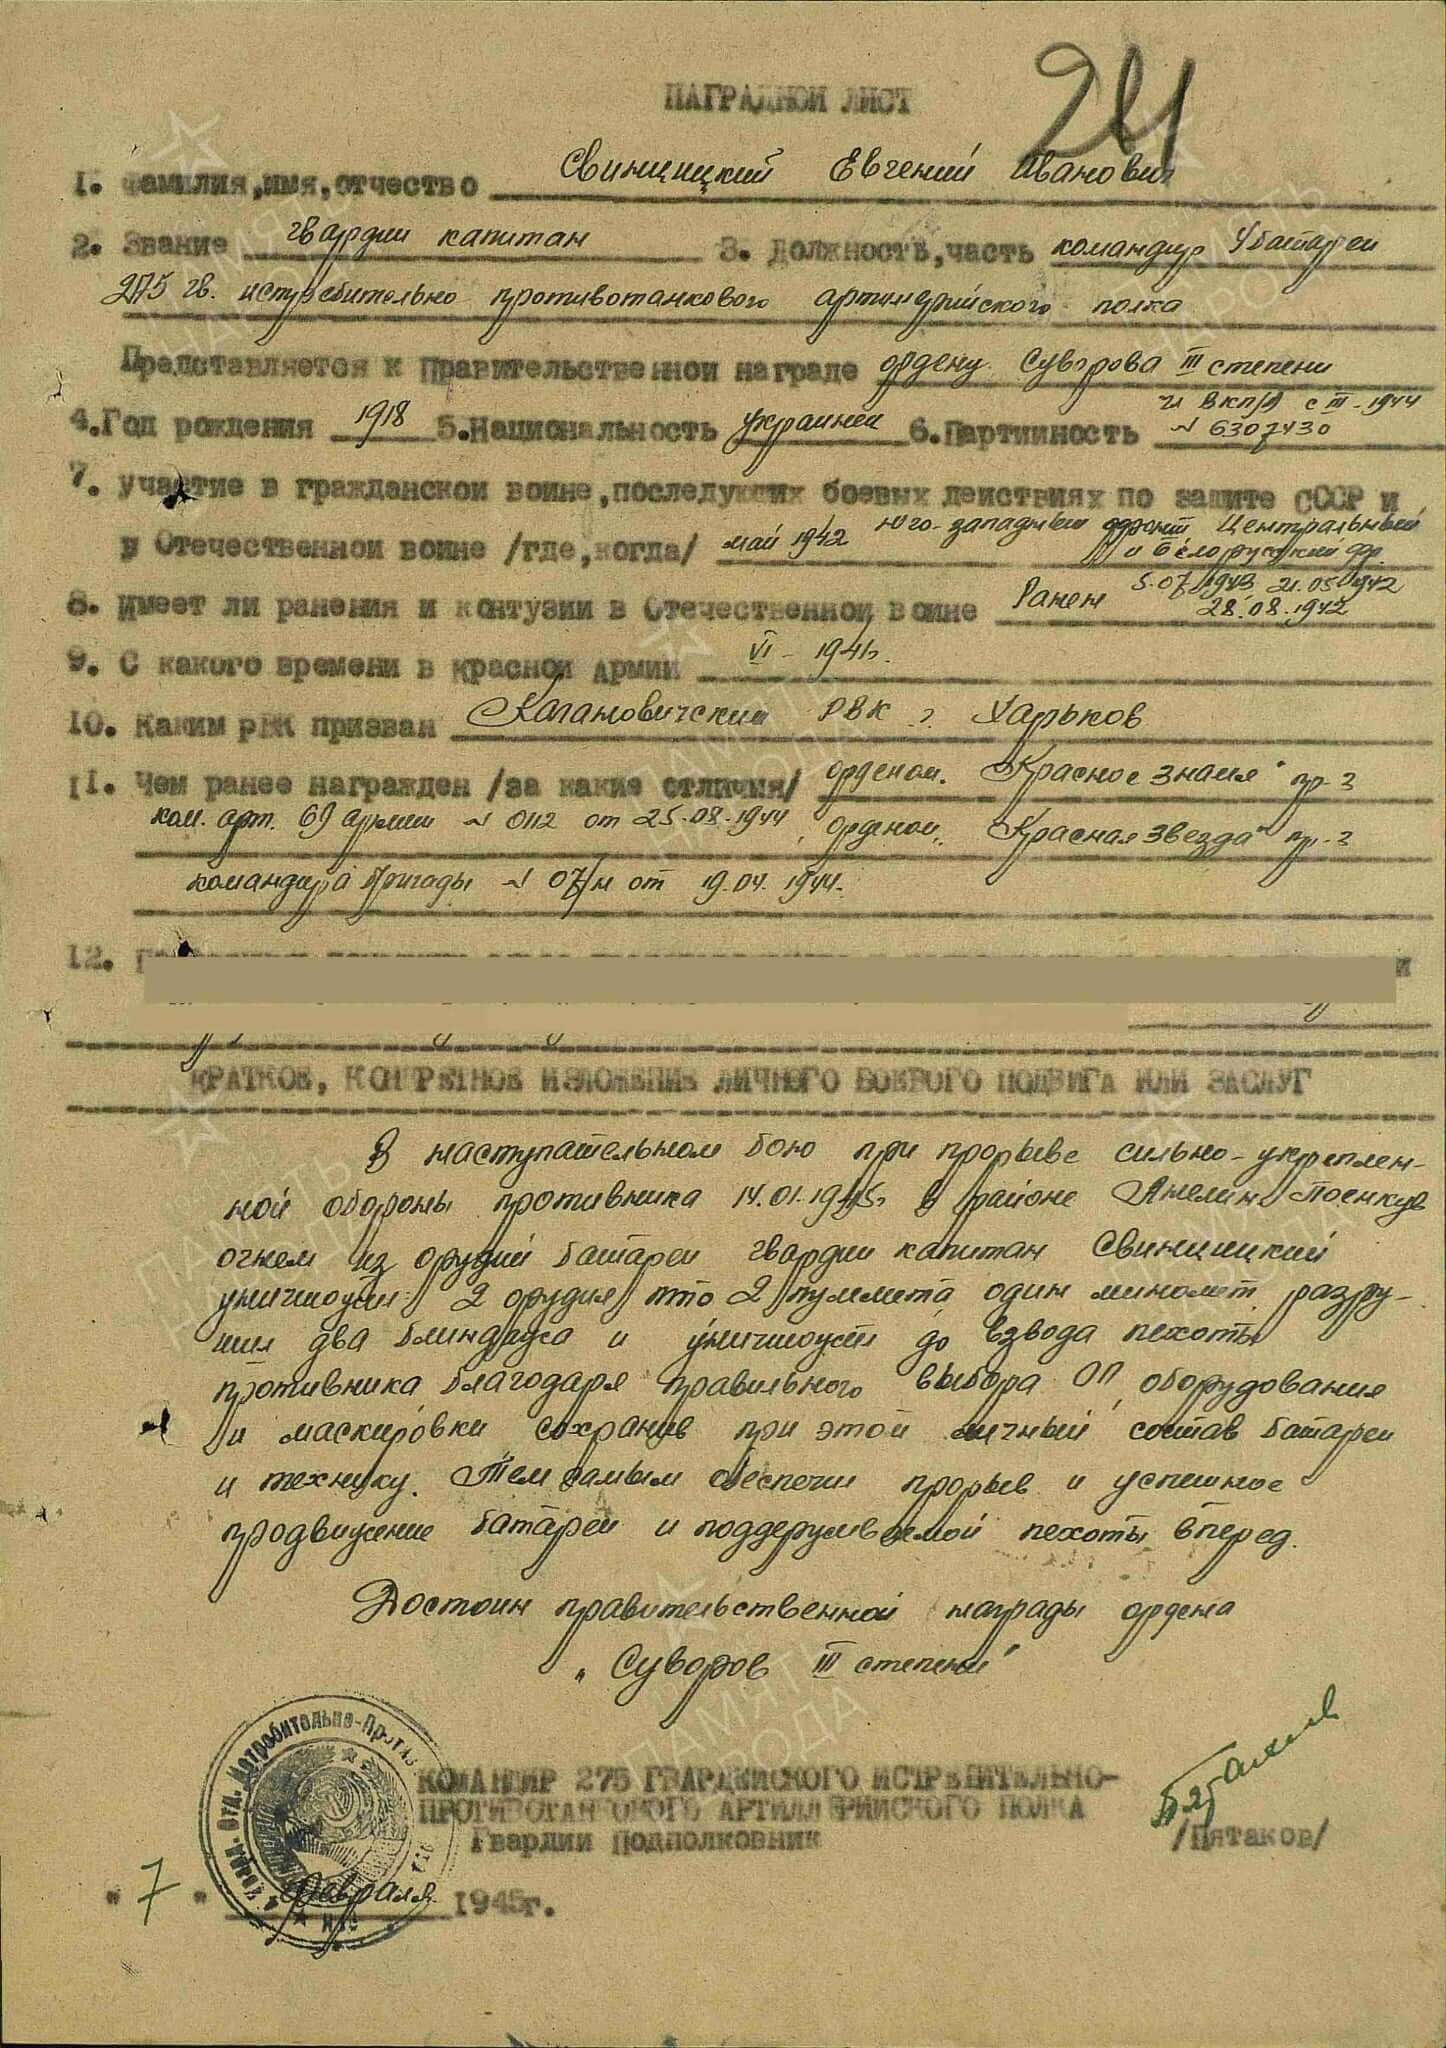 24
НАГРАДНОЙ ЛИСТ
1. Фамилия,имя,отчество Свинцицкий Евгений Иванович
2. Звание гвардии капитан 3. Должность,часть командир 4 батареи
275 гв. истребительно противотанкового артиллерийского полка
Представляется к Правительственной награде ордену Суворова III степени
4.Год рождения 1918 5.Национальность украинец 6.Партийность чл ВКП/б с III-1944
N 6307430
7. участие в гражданской войне,последующих боевых действиях по защите СССР и
в Отечественной войне /где,когда/ май 1942 юго-западный фронт Центральный
и Белорусский фр.
8. Имеет ли ранения и контузии в Отечественной войне Ранен 5.07.1943 21.05.1942
28.08.1942
9. С какого времени в Красной Армии VI - 1941г.
10. Каким РВК призван Кагановичский РВК г. Харьков
11. Чем ранее награжден /за какие отличия/ орденом "Красное Знамя" пр-з
ком. арт. 69 армии N 0112 от 25.08.1944, орденом "Красная Звезда" пр-з
командира бригады N 07/н от 19.04.1944.
12.
КРАТКОЕ, КОНКРЕТНОЕ ИЗЛОЖЕНИЕ ЛИЧНОГО БОЕВОГО ПОДВИГА ИЛИ ЗАСЛУГ
В наступательном бою при прорыве сильно-укреплен-
ной обороны противника 14.01.1945г в районе Анелин
огнем из орудий батареи гвардии капитан Свинцицкий
уничтожил 2 орудия ПТО 2 пулемета один миномет, разру-
шил два блиндажа и уничтожил до взвода пехоты
противника благодаря правильного выбора ОП, оборудования
и маскировки сохранив при этом личный состав батареи
и технику. Тем самым обеспечил прорыв и успешное
продвижение батареи и поддерживаемой пехоты вперед.
Достоин правительственной награды ордена
"Суворов III степени"
КОМАНДИР 275 ГВАРДЕЙСКОГО ИСТРЕБИТЕЛЬНО-
ПРОТИВОТАНКОВОГО АРТИЛЛЕРИЙСКОГО ПОЛКА
Гвардии Подполковник /Пятаков/
"7" февраля 1945г.